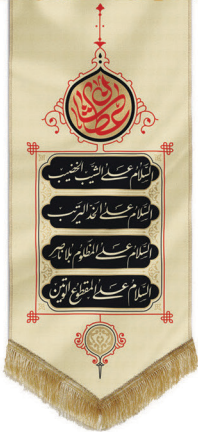 عطشان
السَّلامُ عَلَى الشَّيْبِ الخَضيبِ
السَّلامُ عَلَى الخَدِّ التَّريبِ
السَّلامُ عَلَى المَظلومِ بِلا ناصِرٍ
السَّلامُ عَلَى المَقطوعِ الوَتينِ